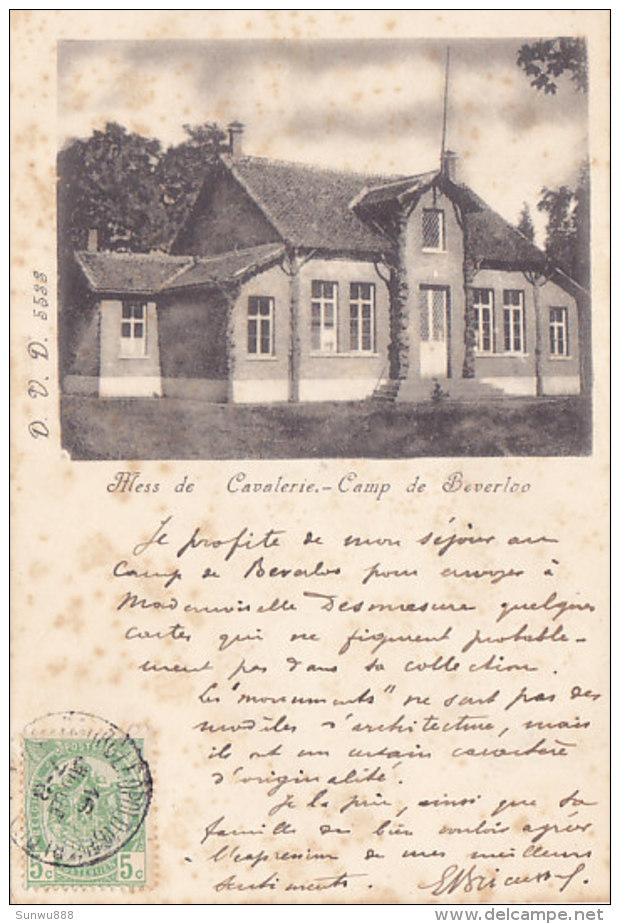 D. V. D. 5533
Mess de Cavalerie.- Camp de Beverloo
Je profite de mon séjour au
Camp de Beverloo pour envoyer à
Mademoiselle Desmesure quelques
cartes qui ne figurent probable-
ment pas dans sa collection.
Les "monuments" ne sont pas des
modèles d'architecture, mais
ils ont un certain caractère
d'originalité.
Je la prie, ainsi que sa
famille de bien vouloir agréer
l'expression de mes meilleurs
sentiments.
5c 5c
Sunwu888
DELCAMPE.NET